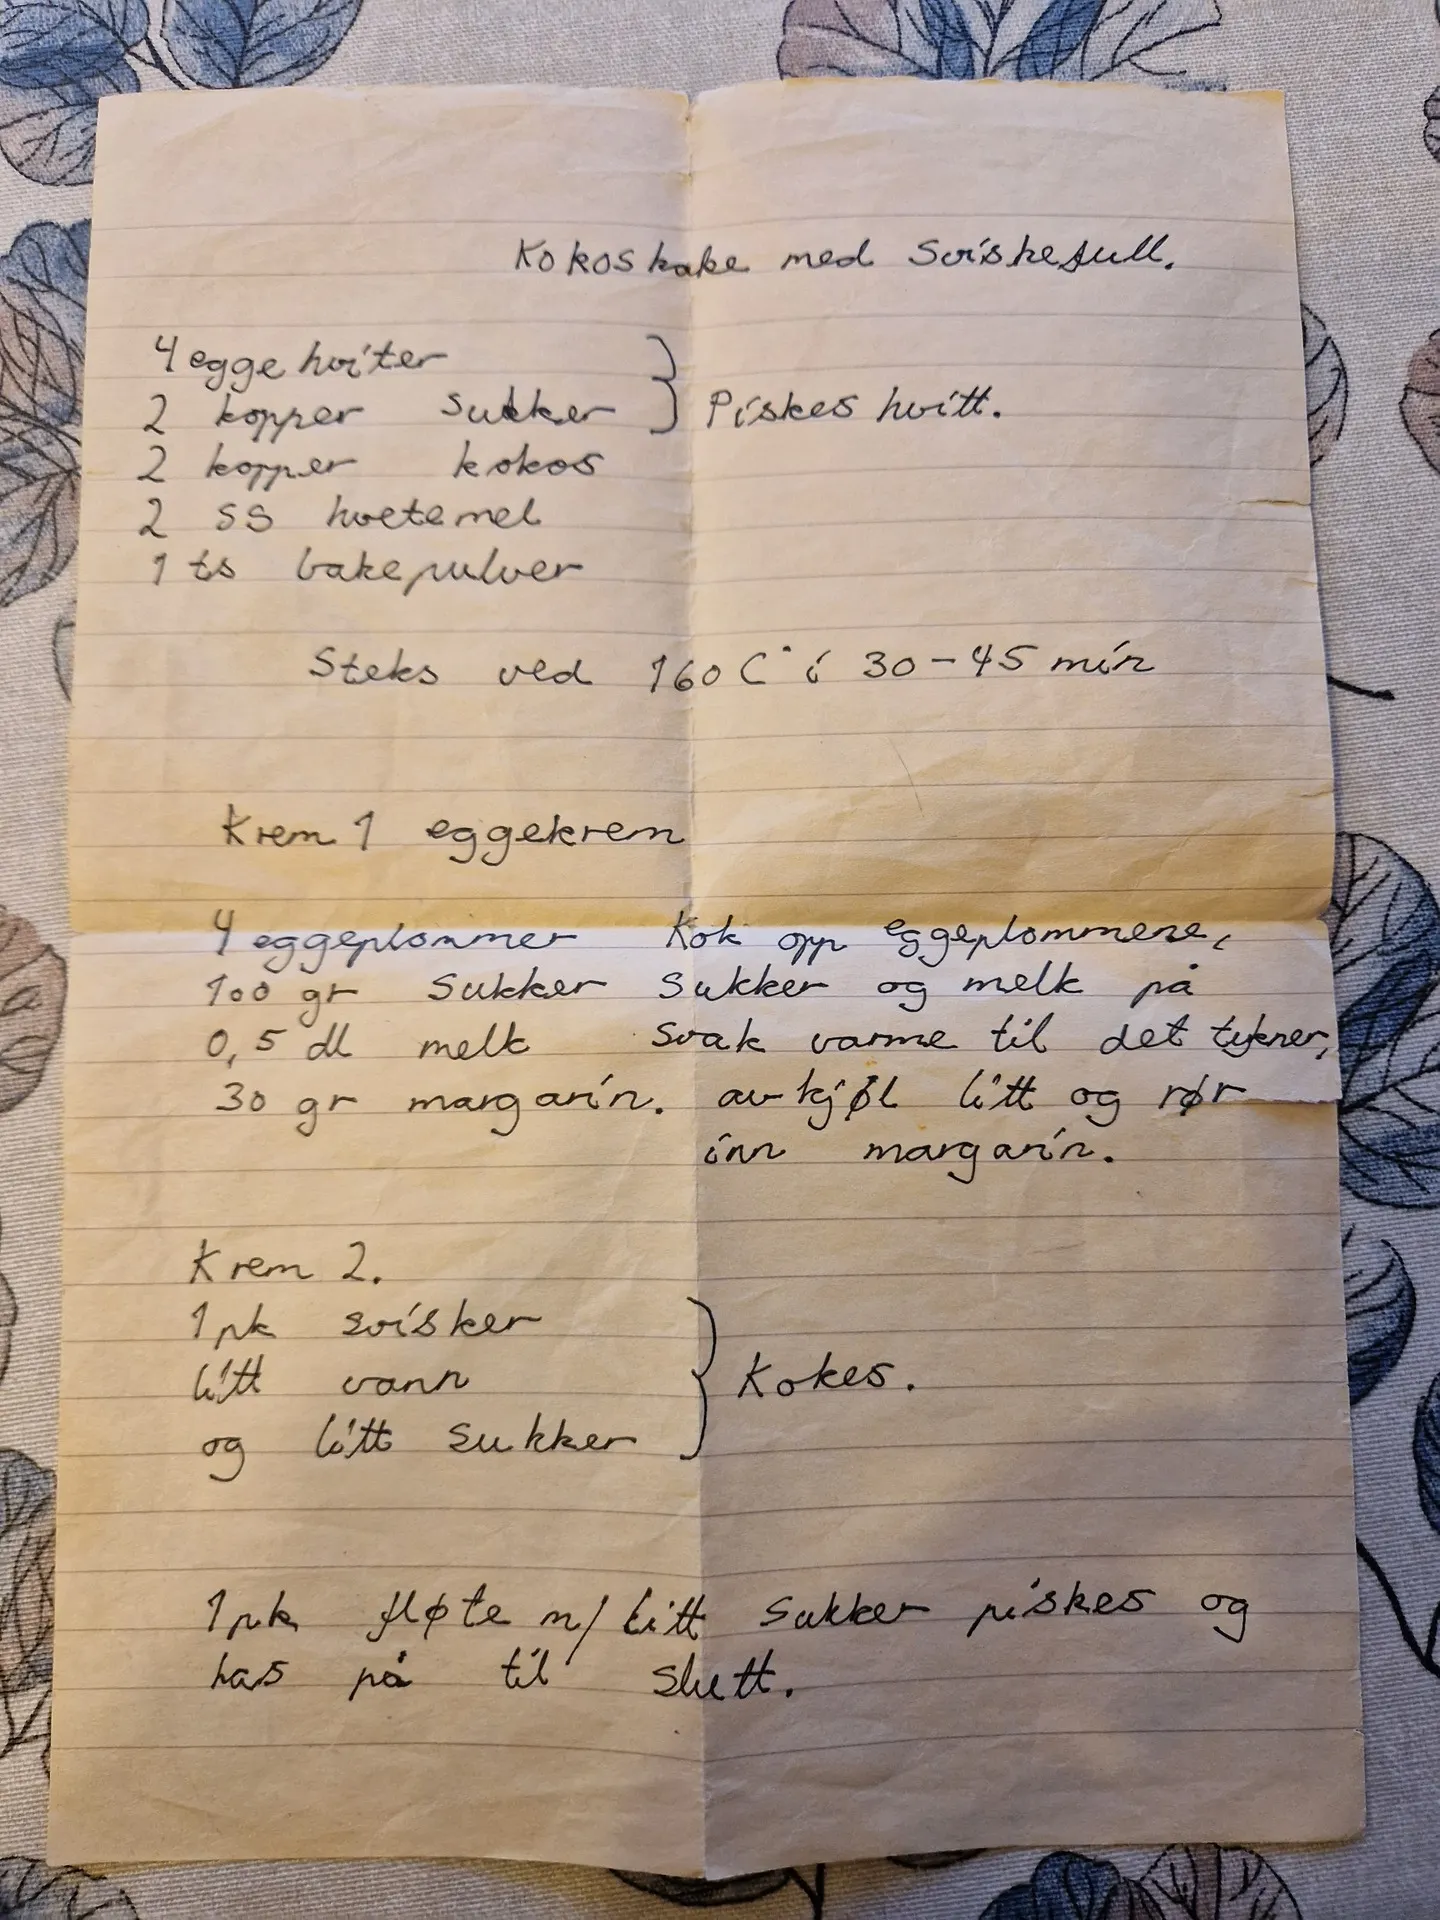 Kokoskake med Sviskefull.
4 eggehviter
2 kopper sukker } Piskes hvitt.
2 kopper kokos
2 ss hvetemel
1 ts bakepulver
Steks ved 160 C° i 30-45 min
Krem 1 eggekrem
4 eggeplommer Kok opp eggeplommene,
100 gr sukker sukker og melk på
0,5 dl melk svak varme til det tykner,
30 gr margarin. avkjøl litt og rør
inn margarin.
Krem 2.
1 pk svisker
litt vann } Kokes.
og litt sukker
1 pk fløte m/ litt sukker piskes og
has på til slutt.